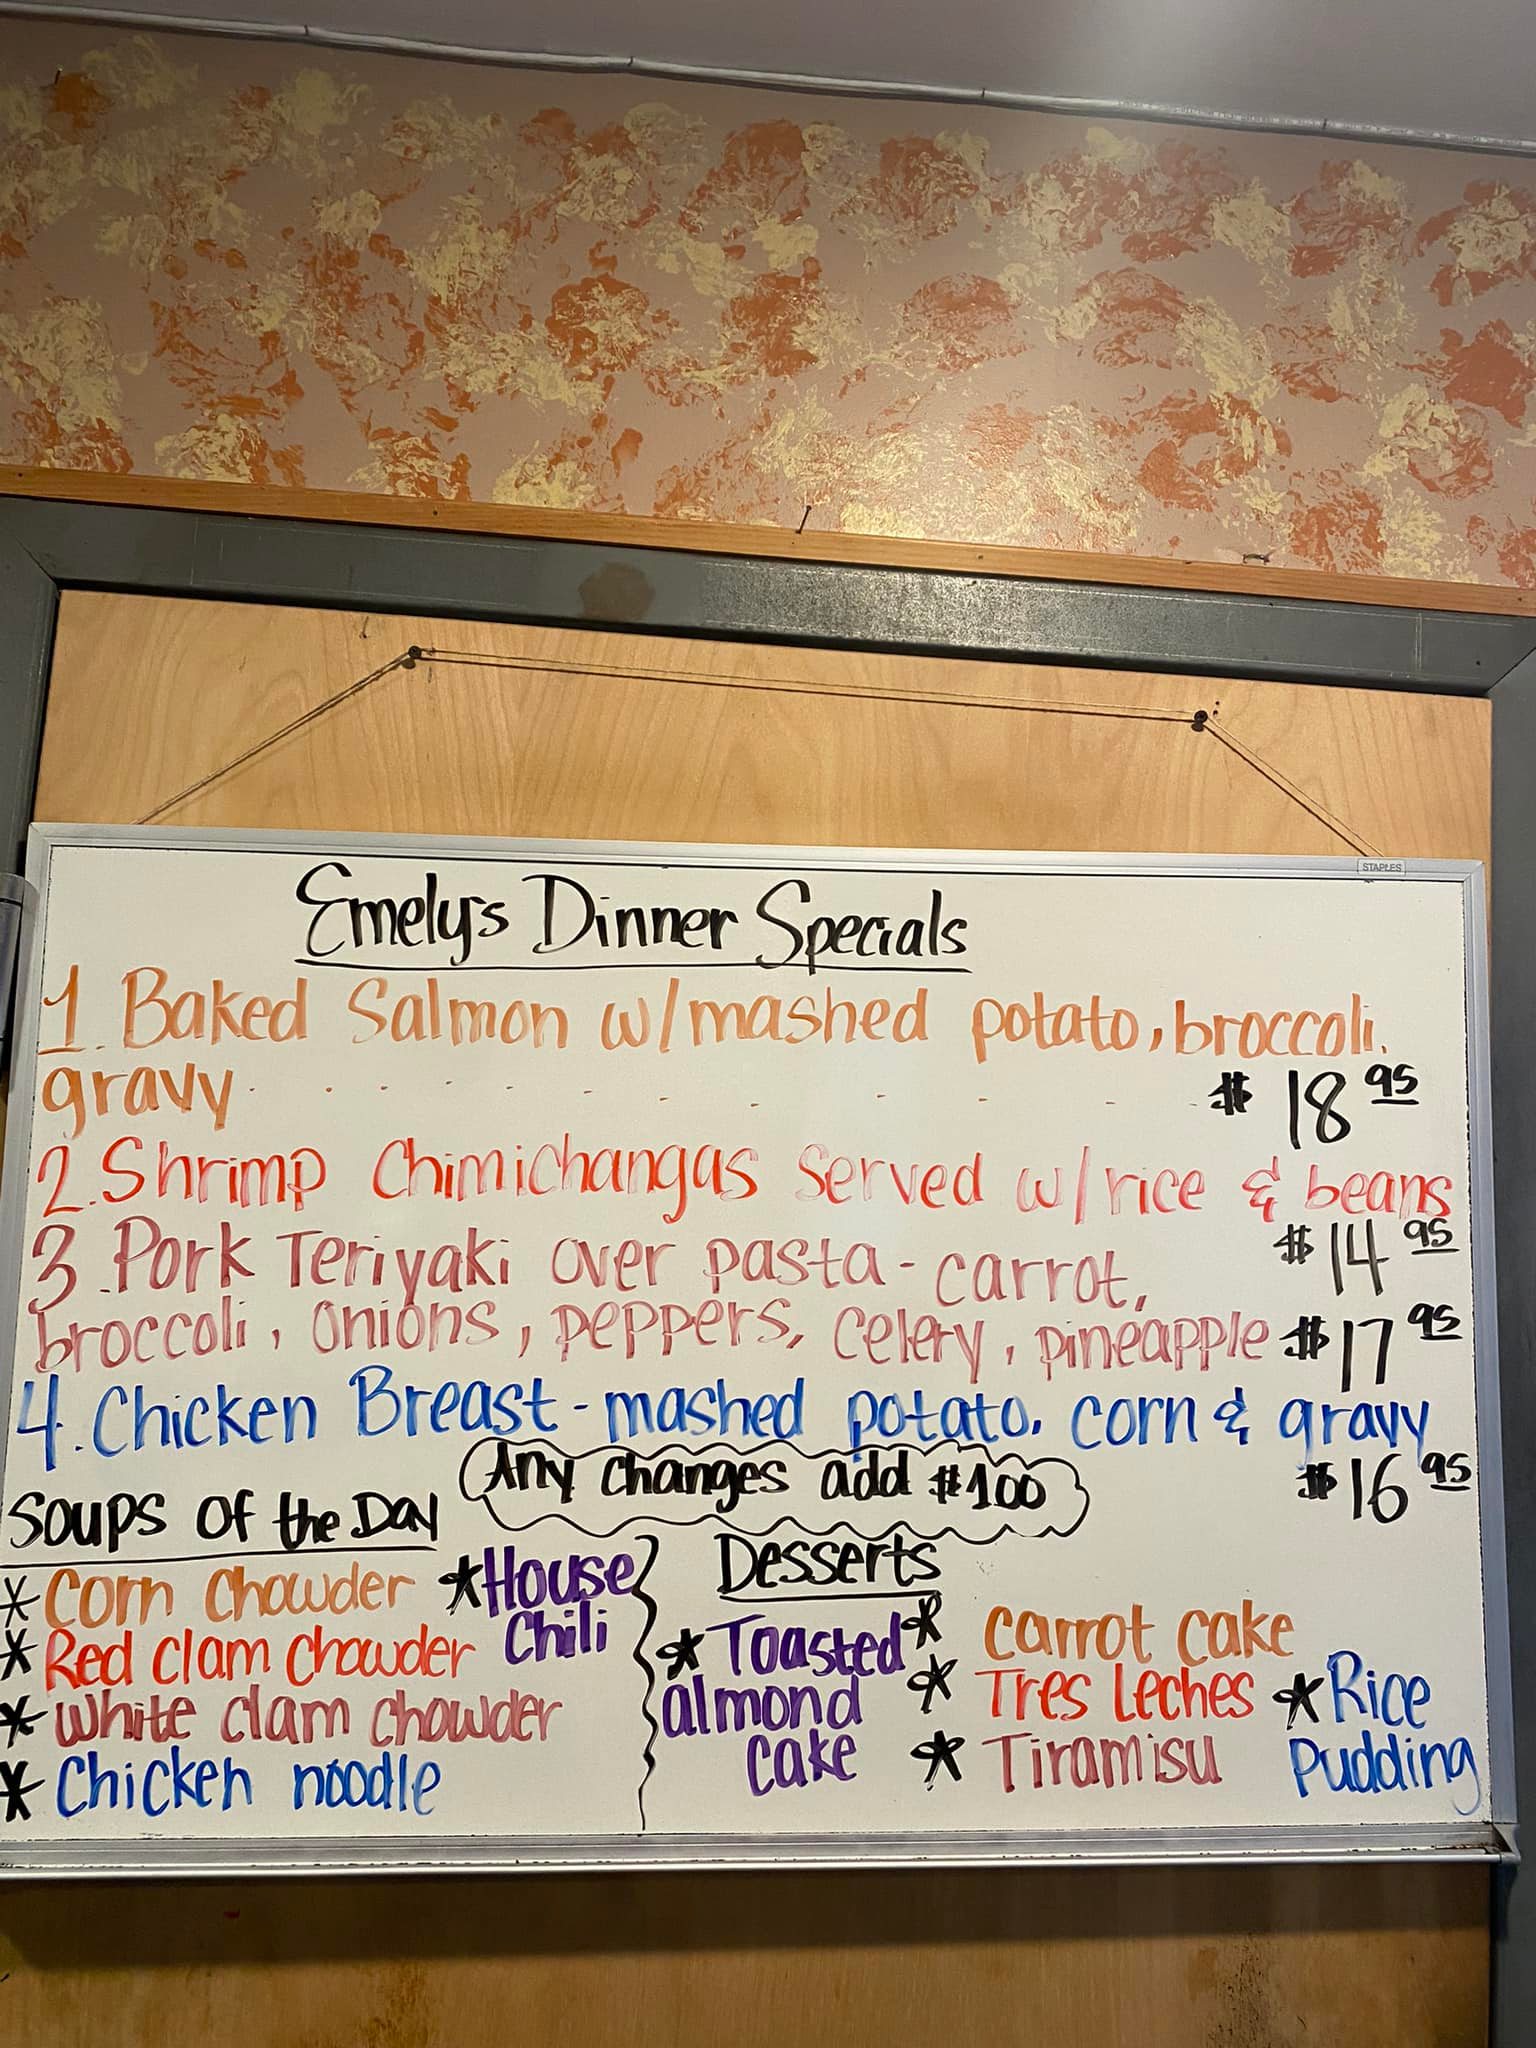 STAPLES
Emely's Dinner Specials
1. Baked Salmon w/mashed potato, broccoli.
gravy. . . . . . . . . . . . $18.95
2. Shrimp Chimichangas Served w/rice & beans
$14.95
3. Pork Teriyaki over pasta - carrot,
broccoli, onions, peppers, celery, pineapple $17.95
4. Chicken Breast - mashed potato, corn & gravy
$16.95
Any changes add $1.00
Soups of the Day
* Corn Chowder
* Red clam chowder
* White clam chowder
* Chicken noodle
* House
Chili
Desserts
* Toasted
almond
cake
* carrot cake
* Tres Leches
* Tiramisu
* Rice
Pudding